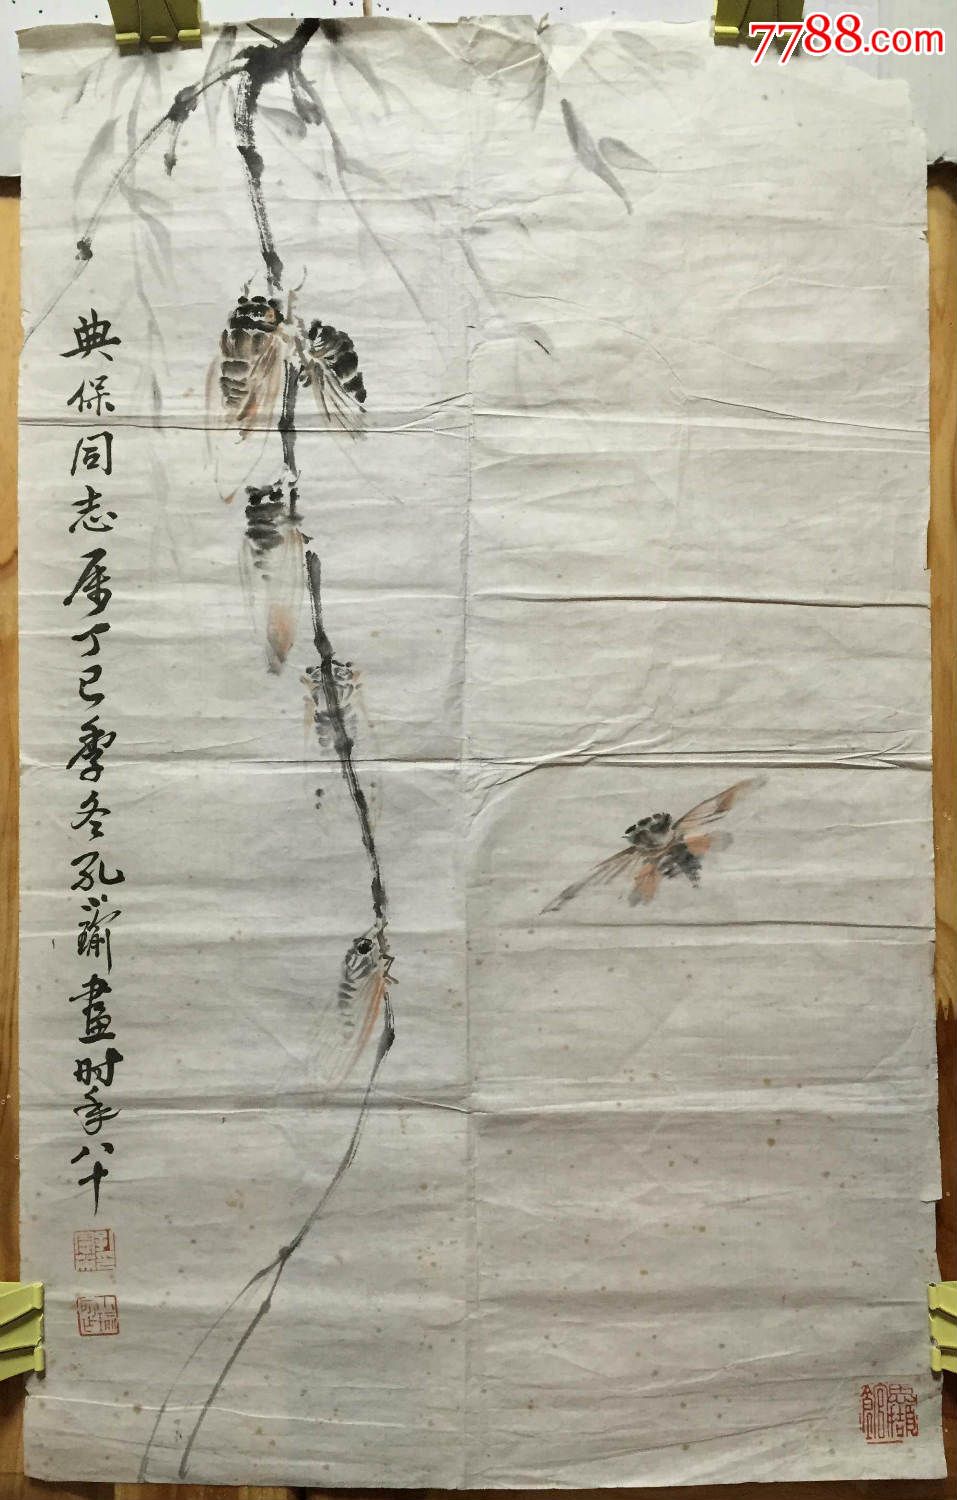 7788.com
典保同志属丁巳季冬孔小瑜畫时年八十